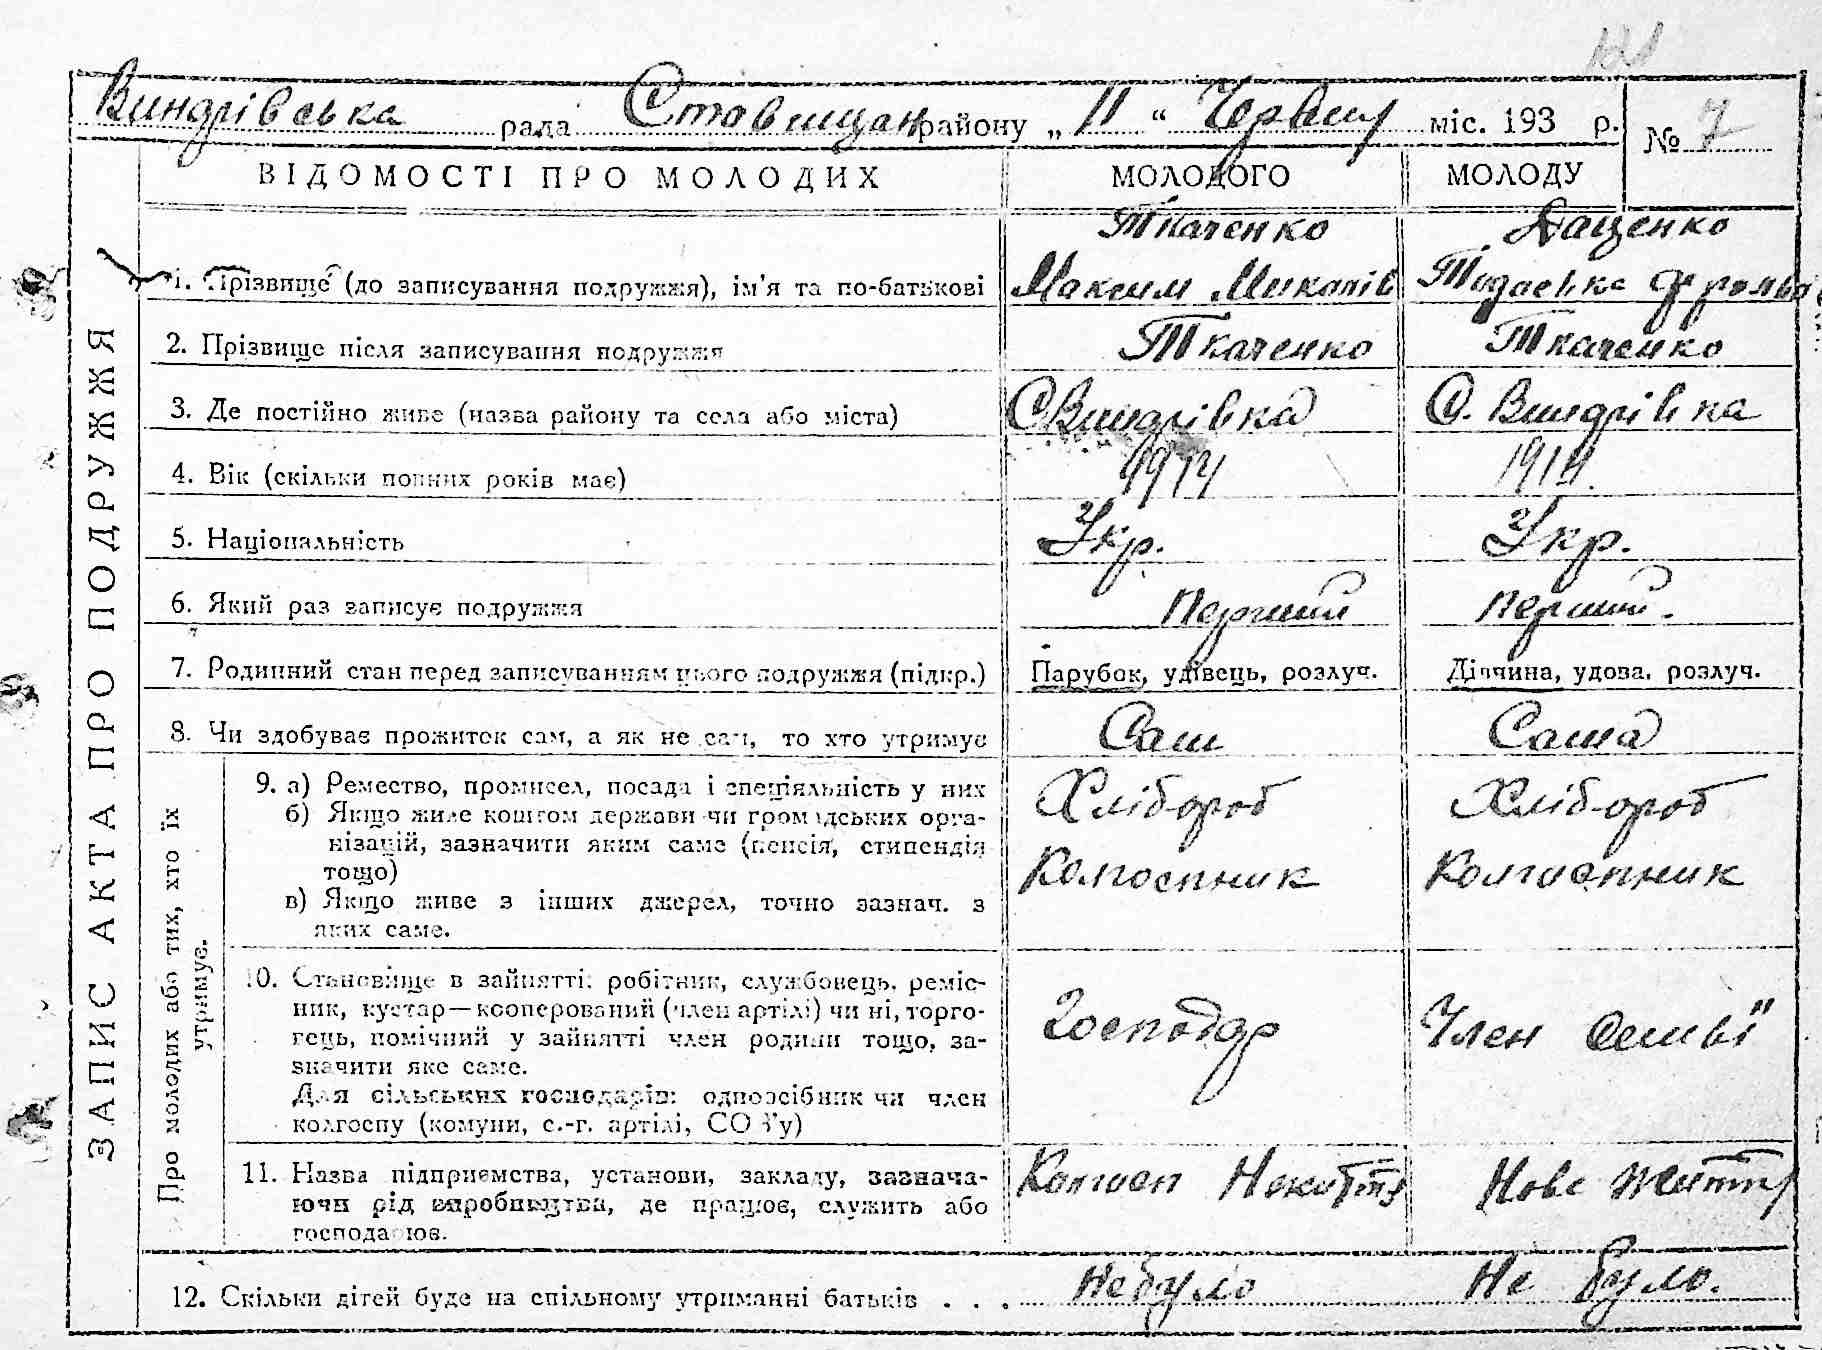 Виндрівська рада Ставищан району „ 11 “ Червня міс. 193 р. № 7
ЗАПИС АКТА ПРО ПОДРУЖЖЯ
ВІДОМОСТІ ПРО МОЛОДИХ МОЛОДОГО МОЛОДУ
Ткаченко Даценко
1. Прізвище (до записування подружжя), ім'я та по-батькові Максим Миколів Тодоська
2. Прізвище після записування подружжя Ткаченко Ткаченко
3. Де постійно живе (назва району та села або міста) С. Виндрівка С. Виндрівка
4. Вік (скільки повних років має) 1914 1914.
5. Національність Укр. Укр.
6. Який раз записує подружжя Перший перший.
7. Родинний стан перед записуванням цього подружжя (підкр.) Парубок, удівець, розлуч. Дівчина, удова, розлуч.
8. Чи здобуває прожиток сам, а як не сам, то хто утримує Сам Сама
Про молодих або тих, хто їх
утримує.
9. а) Ремество, промисел, посада і спеціяльність у них Хлібороб Хлібороб
б) Якщо живе коштом держави чи громадських орга-
нізацій, зазначити яким саме (пенсія, стипендія
тощо) Колгоспник Колгоспник
в) Якщо живе з інших джерел, точно зазнач. з
яких саме.
10. Становище в зайнятті: робітник, службовець, реміс-
ник, кустар—кооперований (член артілі) чи ні, торго- Господар Член семьї
гець, помічний у зайнятті член родини тощо, за-
значити яке саме.
Для сільських господарів: одноосібник чи член
колгоспу (комуни, с.-г. артілі, СОЗ'у)
11. Назва підприємства, установи, закладу, зазнача- Колгосп Нове життя
ючи рід виробництва, де працює, служить або
господарює.
12. Скільки дітей буде на спільному утриманні батьків . . . Не було Не було.